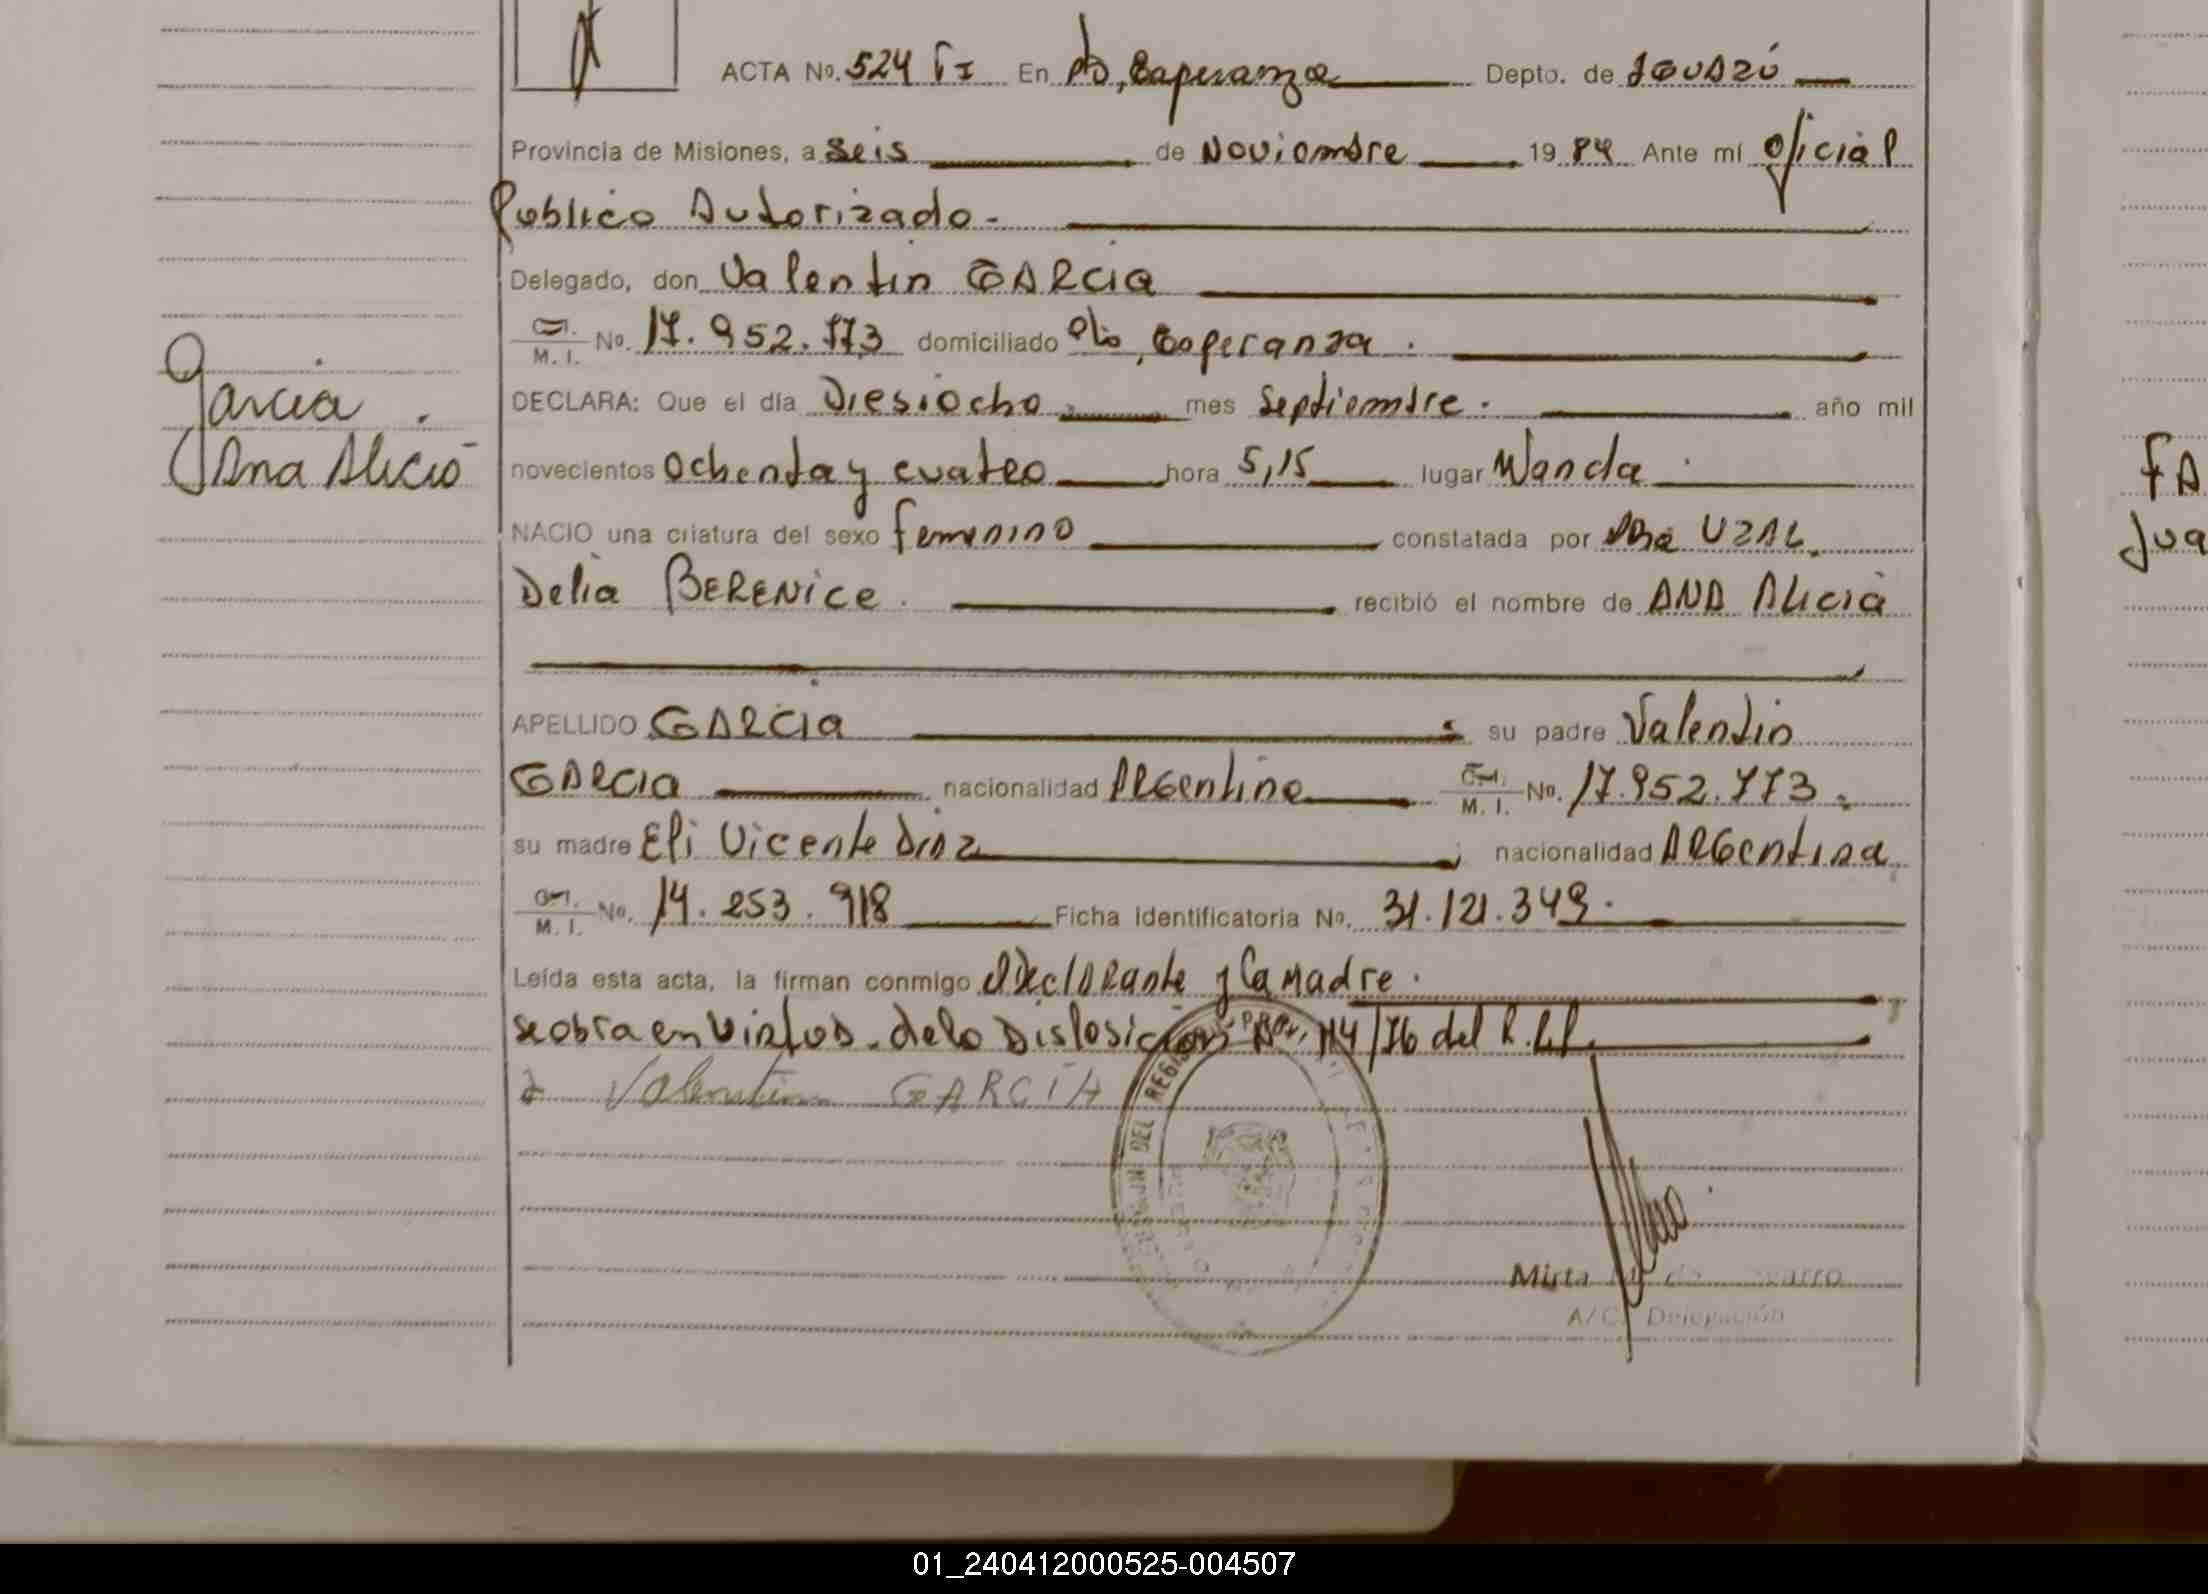 ACTA No. 524 TI En Pto, Esperanza Depto. de IGUAZÚ
Provincia de Misiones, a seis de Noviembre 19 84 Ante mí Oficial
Publico Autorizado.
Delegado, don Valentin GARCIA
C.I. M. I. No. 17.952.773 domiciliado Pto, Esperanza.
Garcia
DECLARA: Que el día Diesiocho mes Septiembre. año mil
Ana Alicia
novecientos Ochenta y cuatro hora 5,15 lugar Wanda
NACIO una criatura del sexo femenino constatada por UZAL.
Delia BERENice recibió el nombre de ANA Alicia
APELLIDO GARCIA su padre Valentin
GARCIA nacionalidad ARGentina C.I. M. I. No. 17.952.773
su madre Eli Vicente Diaz nacionalidad ARGentina
C.I. M. I. No. 14.253.918 Ficha identificatoria No. 31.121.349.
Leída esta acta, la firman conmigo el Declarante y la Madre.
se obra en virtud. de la Disposicion No. 114/76 del R.C.P.
Valentin GARCIA
DEL REGIS
Mirta
A/C. Delegación
FA
Jua
01_240412000525-004507